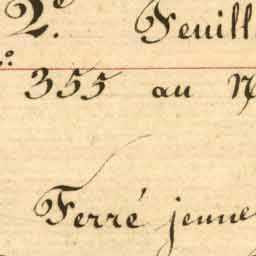 2.e Feuill
o: 355 au N
Ferré jeune